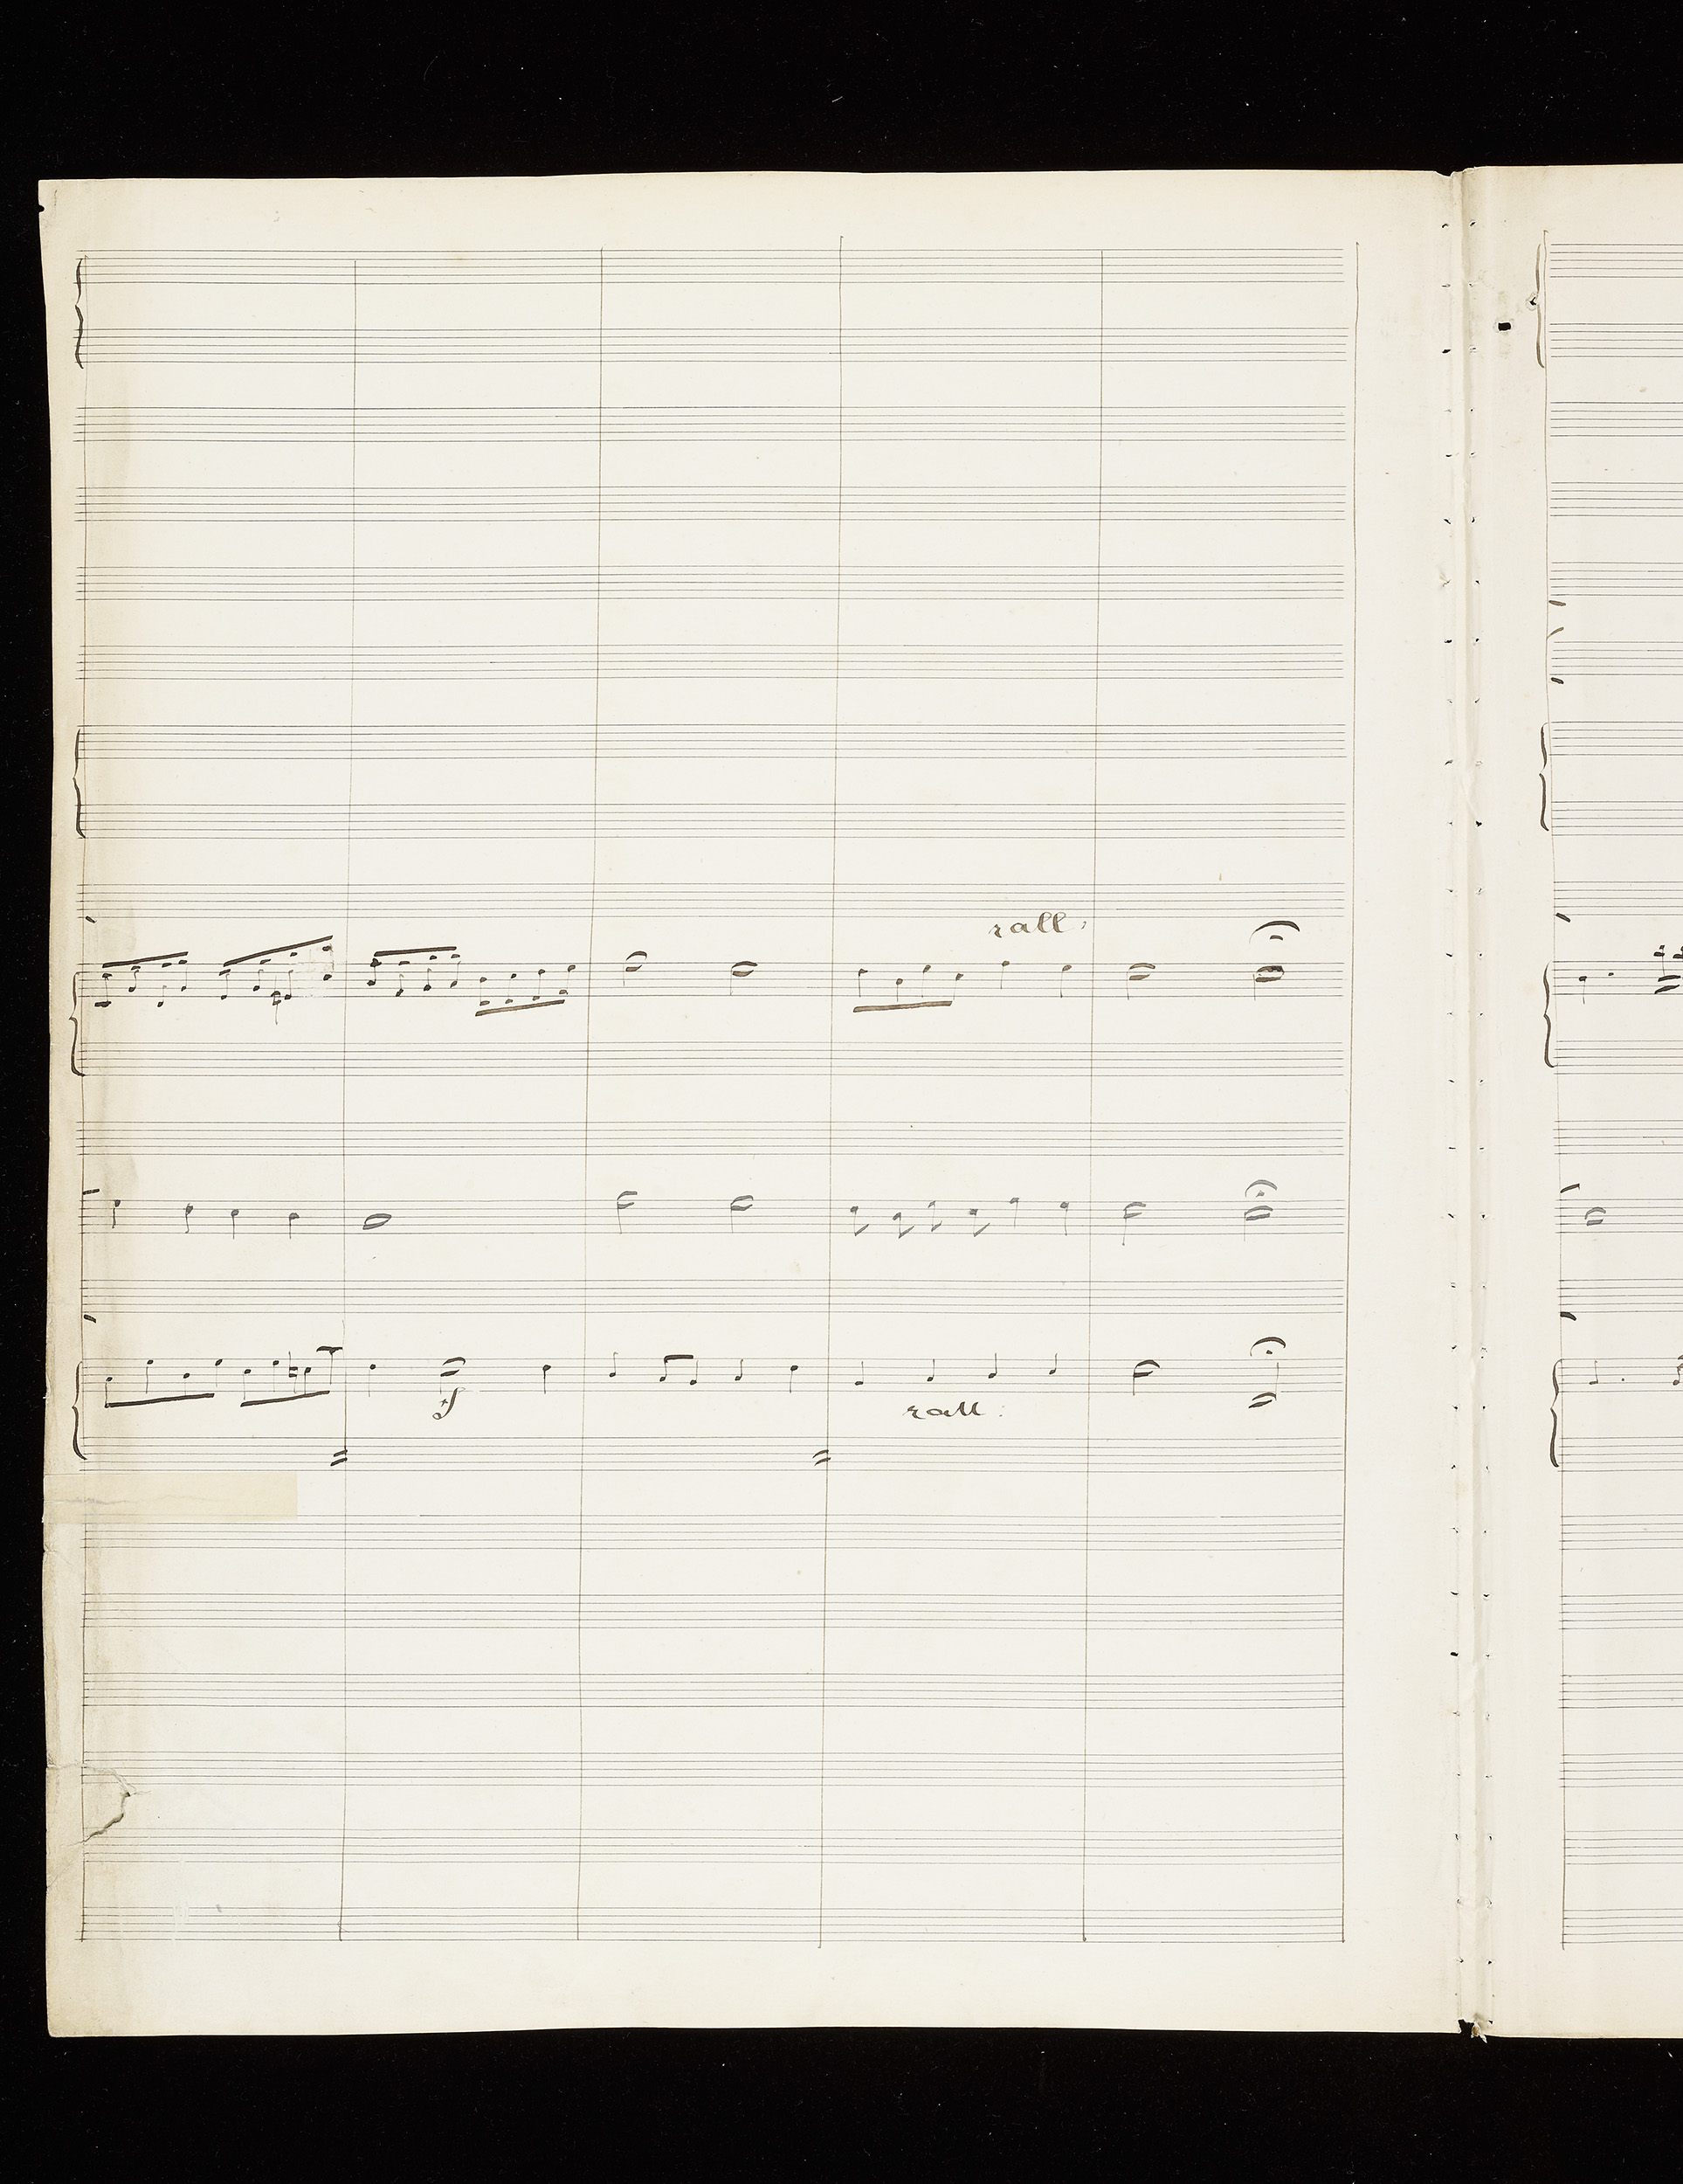 rall:
f
rall: